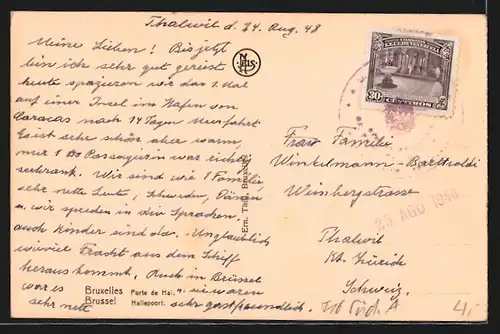 Thalwil d. 24. Aug. 48
Meine Lieben! Bis jetzt
bin ich sehr gut gereist
heute spazieren wir das 1. Mal
auf einer Insel im Hafen von
Caracas nach 14 Tagen
Es ist sehr schön aber warm,
nur 1 Passagierin war richtig
seekrank. Wir sind wie 1 Familie
sehr nette Leute, Schweden, Dänen
u. wir sprechen in drei Sprachen.
auch Kinder sind da. Unglaublich
wieviel Fracht aus dem Schiff
heraus kommt. Auch in Brüssel
war es sie waren
sehr nett sehr gastfreundlich.
Bruxelles Porte de Hal.
Brussel Hallepoort.
Ern. Thill, Bruxelles
NELS
E.E.U.U. DE VENEZUELA
30 CENTIMOS 30
Frau Familie
Winkelmann-Barthold
Weinbergstrasse
25 AGO 1948
Thalwil
Kt. Zürich
Schweiz.